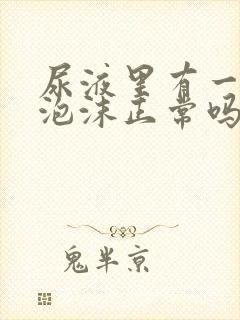 尿液里有一
泡沫正常吗
鬼半京